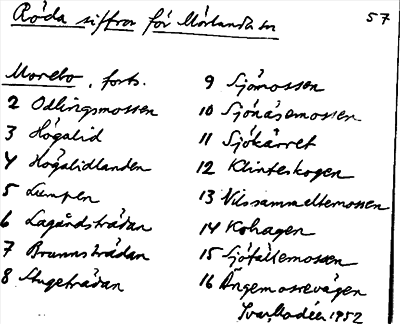 Röda siffror för Mörlanda sn
57
Morebo, forts.
2 Odlingsmossen
3 Högalid
4 Högalidlanden
5 Lumpen
6 Lagårdsträdan
7 Brunnsträdan
8 Stugeträdan
9 Sjömossen
10 Sjönäsemossen
11 Sjökärret
12 Klinteskogen
13 Nilssammeltemossen
14 Kohagen
15 Sjöfällemossen
16 Ängemossevägen
Ivar Modéer 1952